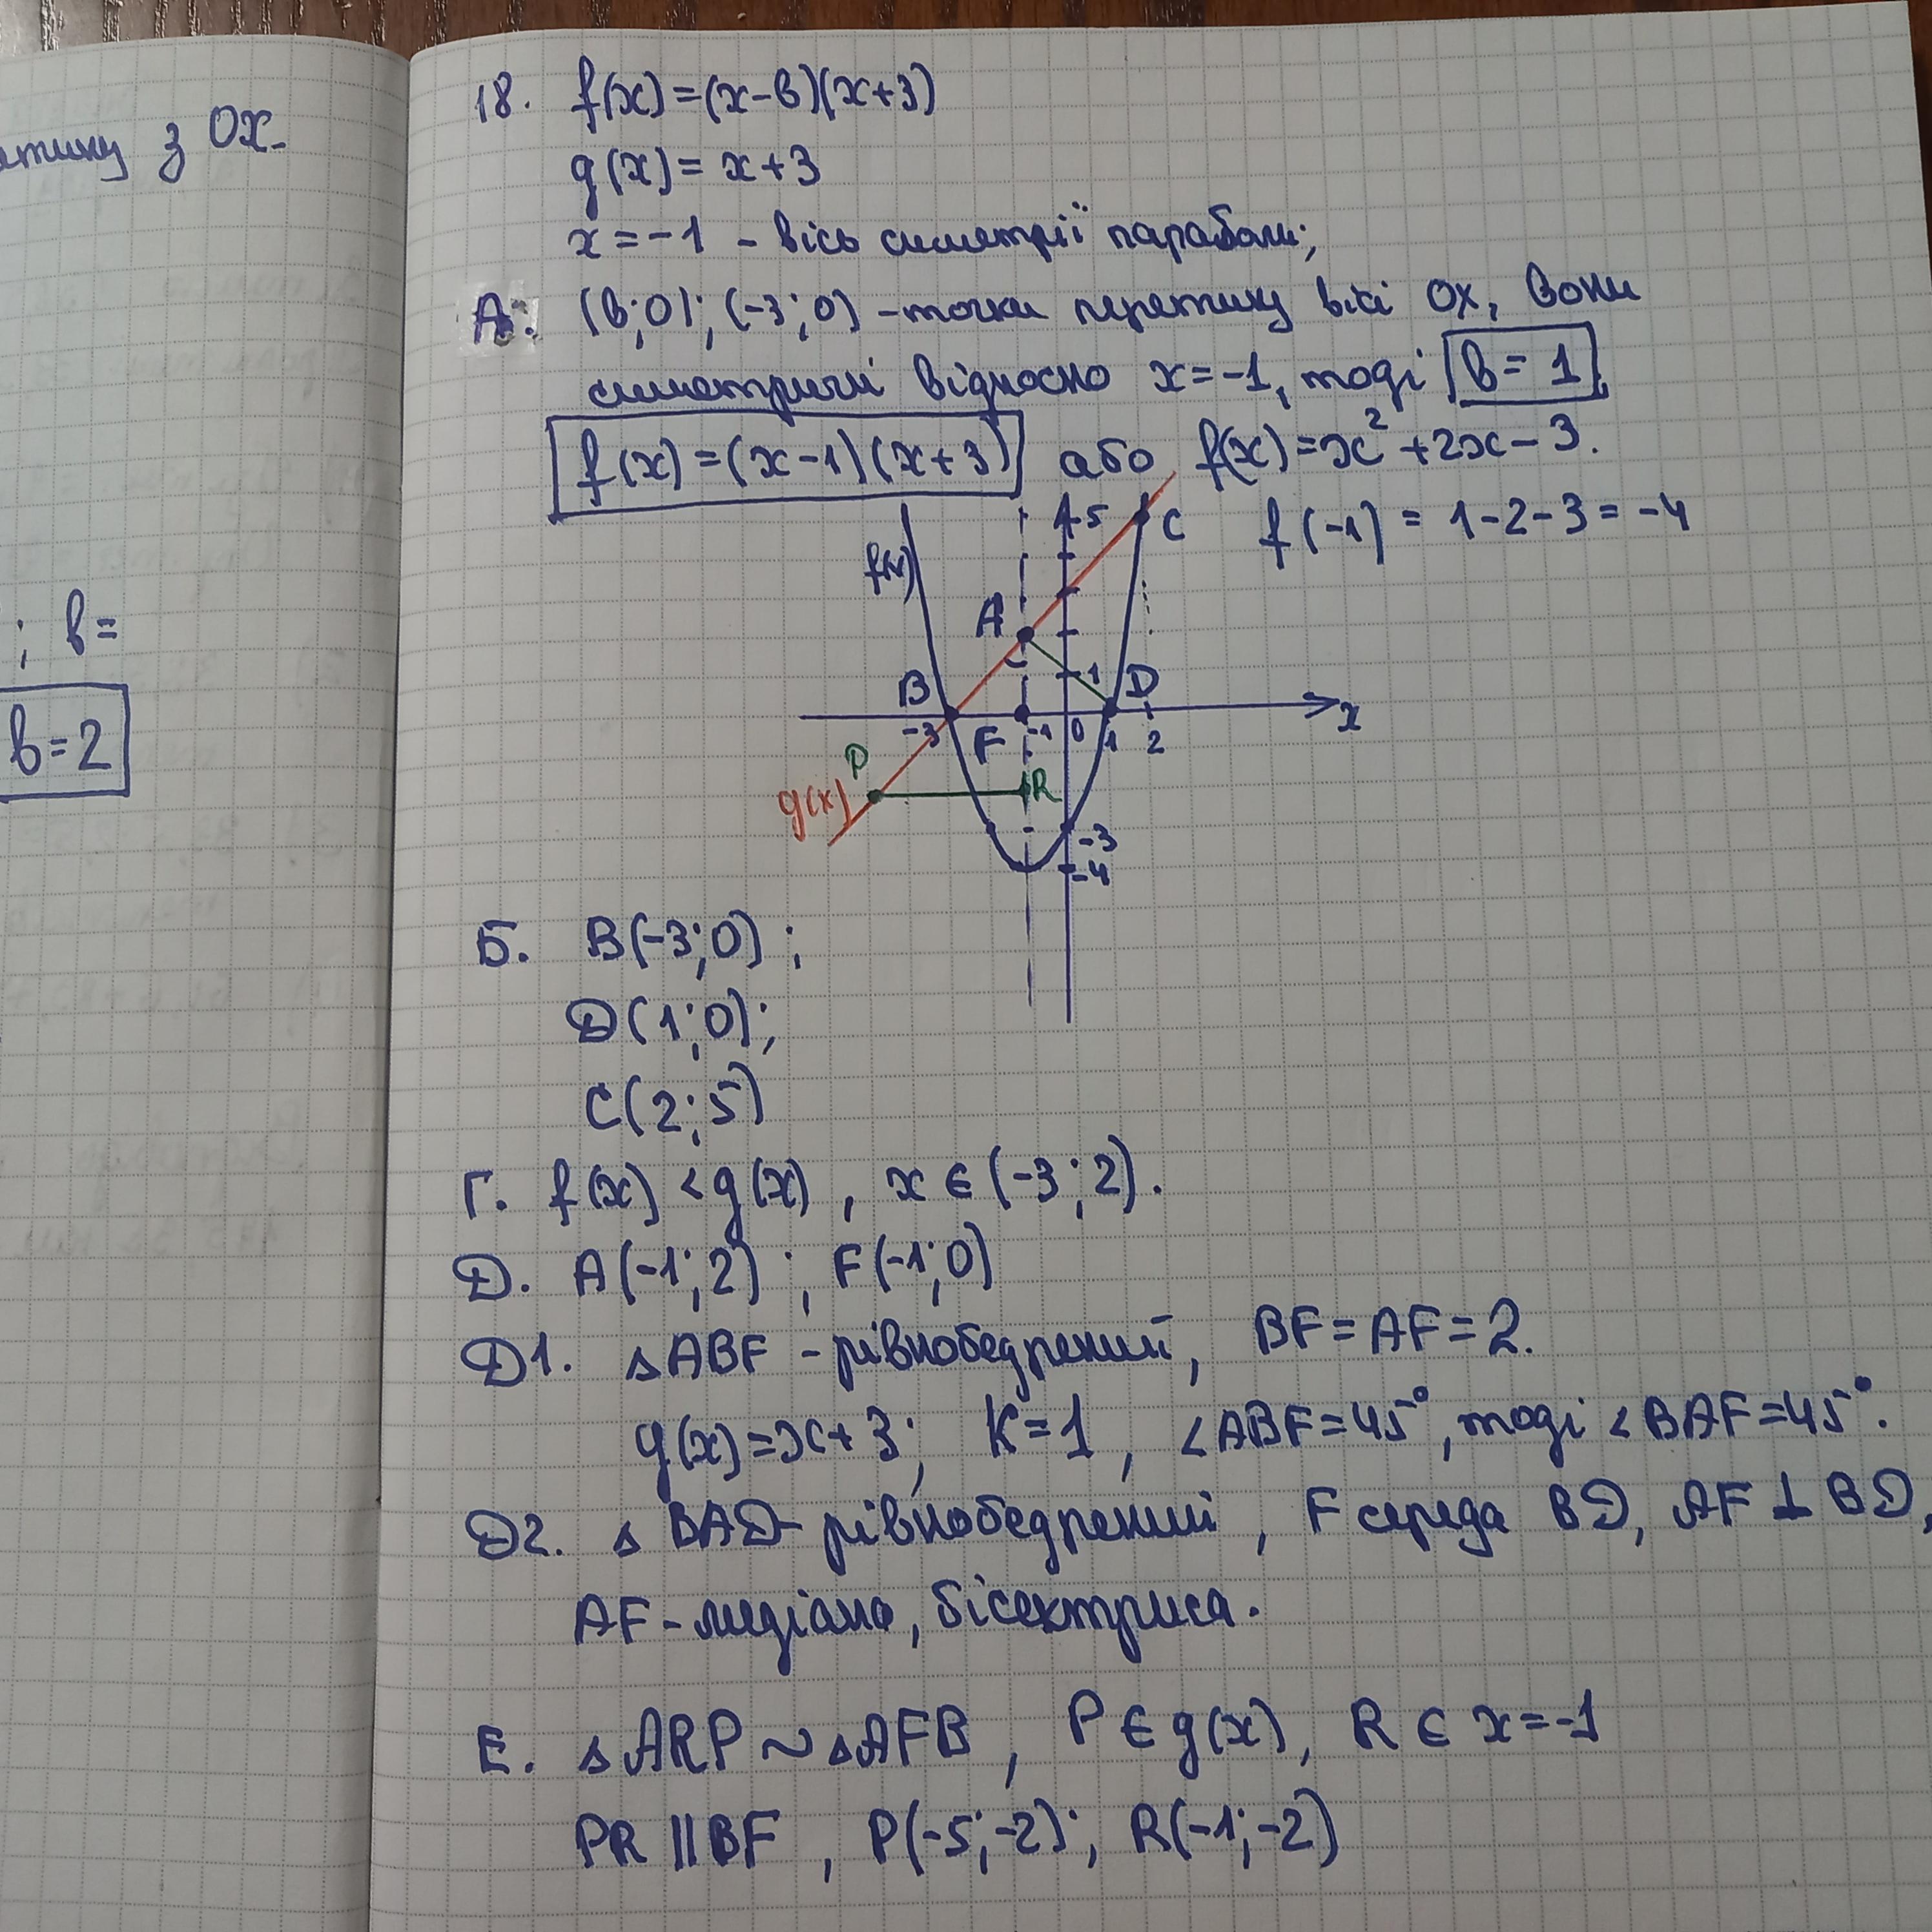 з ОХ.
; в=
в=2
18. f(x)=(x-в)(x+3)
g(x)= x+3
x=-1 - вісь симетрії параболи;
А. (в;0); (-3;0) - точки перетину вісі ОХ, вони
симетричні відносно x=-1, тоді в=1,
f(x)=(x-1)(x+3) або f(x)=x²+2x-3.
f(-1) = 1-2-3=-4
5 C
f(x)
A
B 1 D
-3 F -1 0 1 2 x
P
g(x) R
-3
-4
Б. B(-3;0);
D(1;0);
C(2;5)
Г. f(x)<g(x), x∈(-3;2).
Д. A(-1;2); F(-1;0)
Д1. △ABF - рівнобедрений, BF=AF=2.
g(x)=x+3; K=1, ∠ABF=45°, тоді ∠BAF=45°.
Д2. △ BAD- рівнобедрений, F середа BD, AF⊥BD,
AF-медіана, бісектриса.
Е. △ARP~△AFB, P∈g(x), R∈ x=-1
PR||BF, P(-5;-2); R(-1;-2)